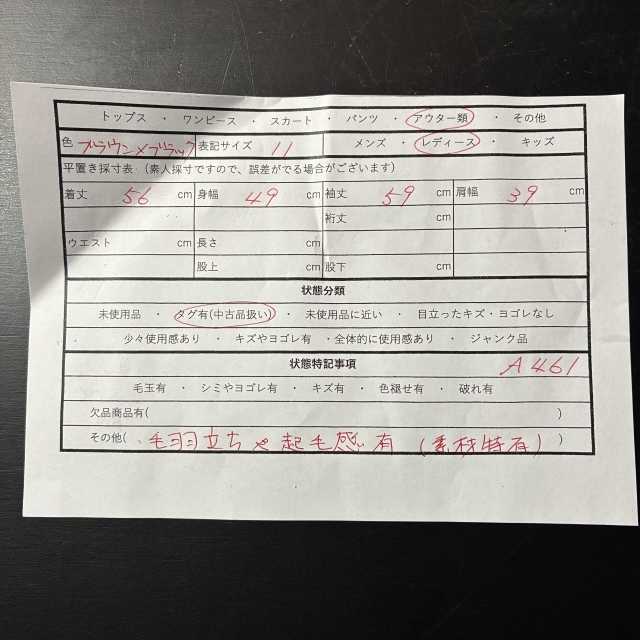 トップス ・ ワンピース ・ スカート ・ パンツ ・ アウター類 ・ その他
色 ブラウン×ブラック 表記サイズ 11 メンズ ・ レディース ・ キッズ
平置き採寸表 (素人採寸ですので、誤差がでる場合がございます)
着丈 56 cm 身幅 49 cm 袖丈 59 cm 肩幅 39 cm
裄丈 cm
ウエスト cm 長さ cm
股上 cm 股下 cm
状態分類
未使用品 ・ タグ有(中古品扱い) ・ 未使用品に近い ・ 目立ったキズ・ヨゴレなし
少々使用感あり ・ キズやヨゴレ有 ・全体的に使用感あり ・ ジャンク品
状態特記事項 A461
毛玉有 ・ シミやヨゴレ有 ・ キズ有 ・ 色褪せ有 ・ 破れ有
欠品商品有( )
その他( 毛羽立ちや起毛感有 (素材特有) )